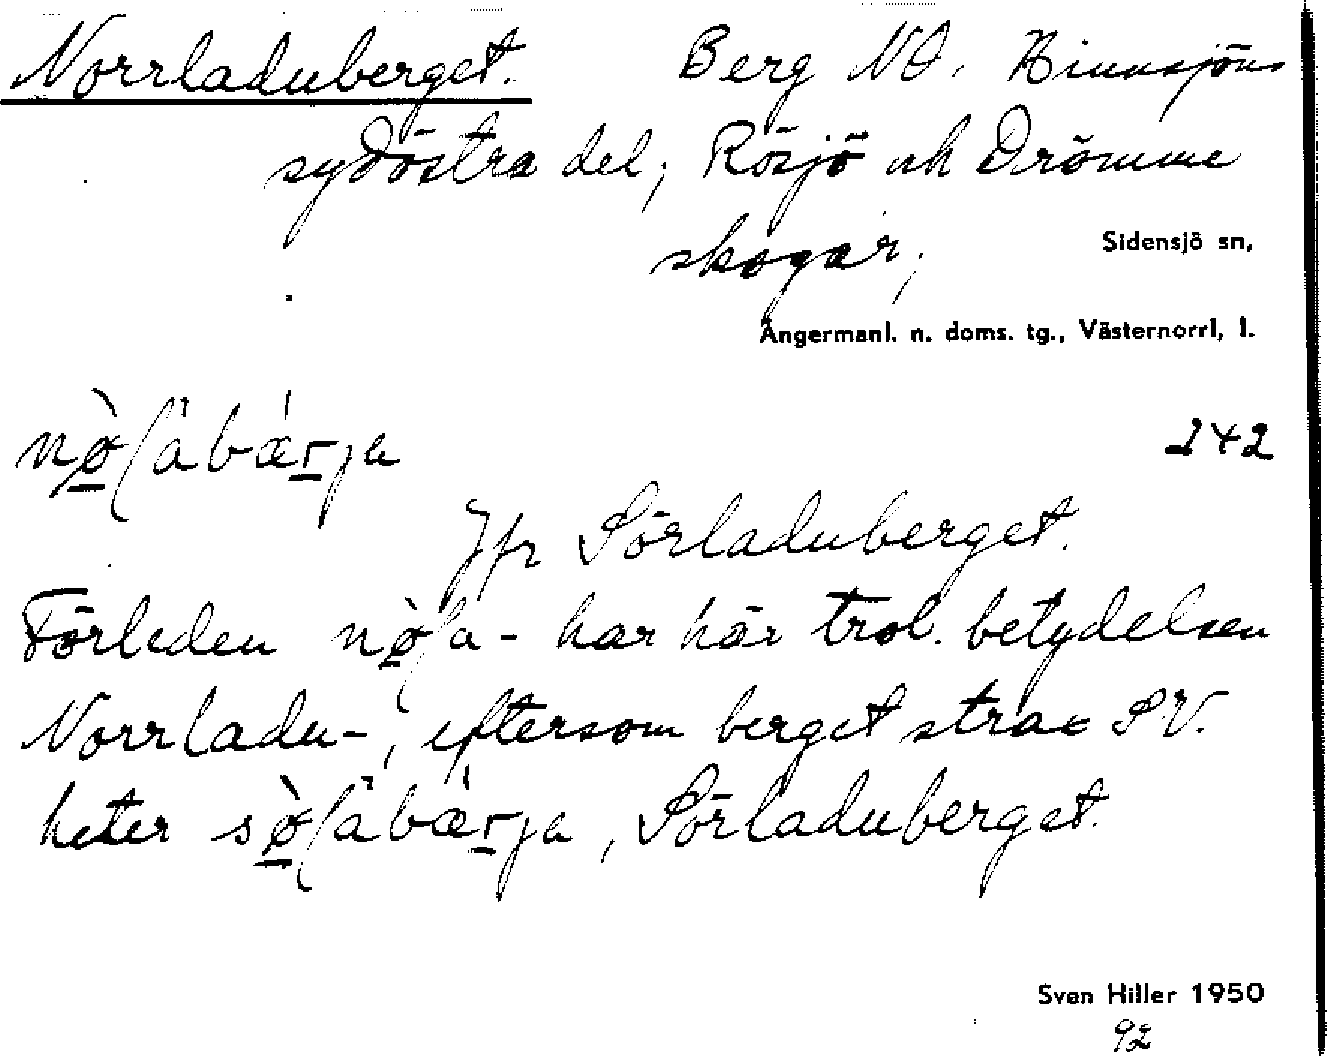 Norrladuberget. Berg NO. Hinnsjöns
sydöstra del; Rösjö och Drömme
skogar;
Sidensjö sn,
Ångermanl. n. doms. tg., Västernorrl, l.
242
Jfr Sörladuberget.
Förleden har här trol. betydelsen
Norrladu-, eftersom berget strax SV.
heter , Sörladuberget.
Sven Hiller 1950
92